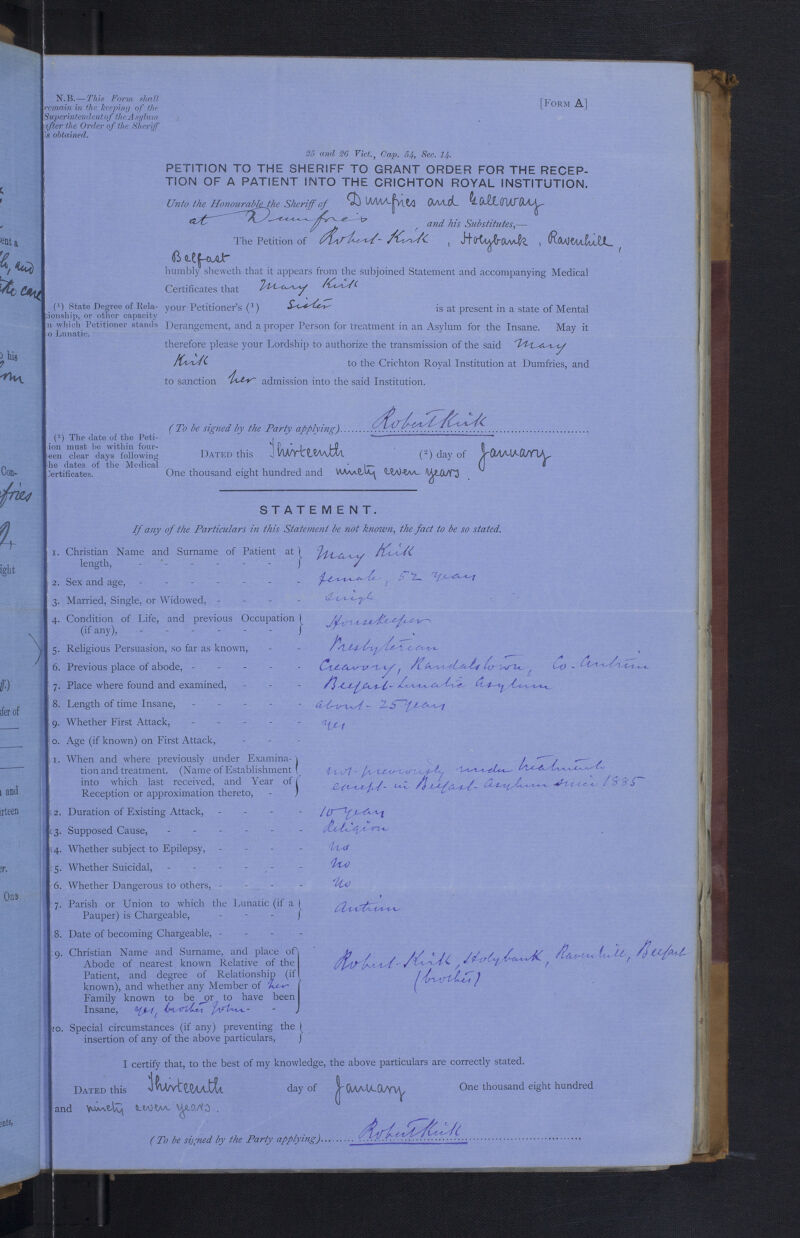 N.B.—This Form shall
remain in the keeping of the
Superintendent of the Asylum
after the Order of the Sheriff
is obtained.
[FORM A]
25 and 26 Vict., Cap. 54, Sec. 14.
PETITION TO THE SHERIFF TO GRANT ORDER FOR THE RECEP-
TION OF A PATIENT INTO THE CRICHTON ROYAL INSTITUTION.
Unto the Honourable the Sheriff of Dumfries and Galloway
at Dumfries, and his Substitutes,—
The Petition of Robert Kirk, Holybank, Ravenhill,
Belfast
humbly sheweth that it appears from the subjoined Statement and accompanying Medical
Certificates that Mary Kirk
(¹) State Degree of Rela-
tionship, or other capacity
in which Petitioner stands
to Lunatic.
your Petitioner's (¹) Sister is at present in a state of Mental
Derangement, and a proper Person for treatment in an Asylum for the Insane. May it
therefore please your Lordship to authorize the transmission of the said Mary
Kirk to the Crichton Royal Institution at Dumfries, and
to sanction her admission into the said Institution.
(To be signed by the Party applying) Robert Kirk
(²) The date of the Peti-
tion must be within four-
teen clear days following
the dates of the Medical
Certificates.
DATED this Thirteenth (²) day of January
One thousand eight hundred and ninety seven years.
STATEMENT.
If any of the Particulars in this Statement be not known, the fact to be so stated.
1. Christian Name and Surname of Patient at length, Mary Kirk
2. Sex and age, female, 52 years
3. Married, Single, or Widowed, Single
4. Condition of Life, and previous Occupation (if any), Housekeeper
5. Religious Persuasion, so far as known, Presbyterian
6. Previous place of abode, Creavory, Randalstown, Co. Antrim
7. Place where found and examined, Belfast Lunatic Asylum
8. Length of time Insane, about 25 years
9. Whether First Attack, yes
0. Age (if known) on First Attack,
1. When and where previously under Examina-
tion and treatment. (Name of Establishment not previously under treatment
into which last received, and Year of except in Belfast Asylum since 1885
Reception or approximation thereto,
2. Duration of Existing Attack, 10 years
3. Supposed Cause, Religion
4. Whether subject to Epilepsy, No
5. Whether Suicidal, No
6. Whether Dangerous to others, No
7. Parish or Union to which the Lunatic (if a Antrim
Pauper) is Chargeable,
8. Date of becoming Chargeable,
9. Christian Name and Surname, and place of
Abode of nearest known Relative of the Robert Kirk, Holybank, Ravenhill, Belfast
Patient, and degree of Relationship (if (brother)
known), and whether any Member of her
Family known to be or to have been
Insane, yes, brother John
20. Special circumstances (if any) preventing the
insertion of any of the above particulars,
I certify that, to the best of my knowledge, the above particulars are correctly stated.
DATED this Thirteenth day of January One thousand eight hundred
and ninety seven years.
(To be signed by the Party applying) Robert Kirk